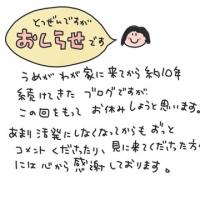 とつぜんですが
おしらせです
うめが わが家に来てから約10年
続けてきた ブログですが
この回をもって お休みしようと思います。
あまり活発にしなくなってからも ずっと
コメント くださったり、見に来てくださった方
には心から感謝しております。